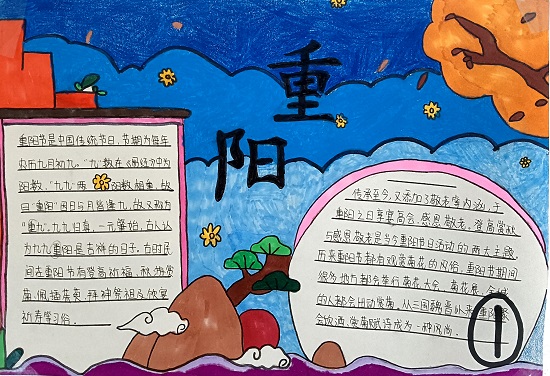 重
阳
重阳节是中国传统节日,节期为每年
农历九月初九。"九"数在《易经》中为
阳数,"九九"两 阳数相重,故
曰"重阳"因日与月皆逢九,故又称为
"重九"。九九归真,一元肇始,古人认
为九九重阳是吉祥的日子。古时民
间在重阳节有登高祈福、秋游赏
菊、佩插茱萸、拜神祭祖及饮宴
祈寿等习俗。
传承至今,又添加了敬老等内涵,于
重阳之日享宴高会,感恩敬老。登高赏秋
与感恩敬老是当今重阳节日活动的两大主题。
历来重阳节都有观赏菊花的风俗,重阳节期间
很多地方都会举行菊花大会,菊花展,全城
的人都会出动赏菊,从三国魏晋以来重阳聚
会饮酒、赏菊赋诗成为一种风尚。
1